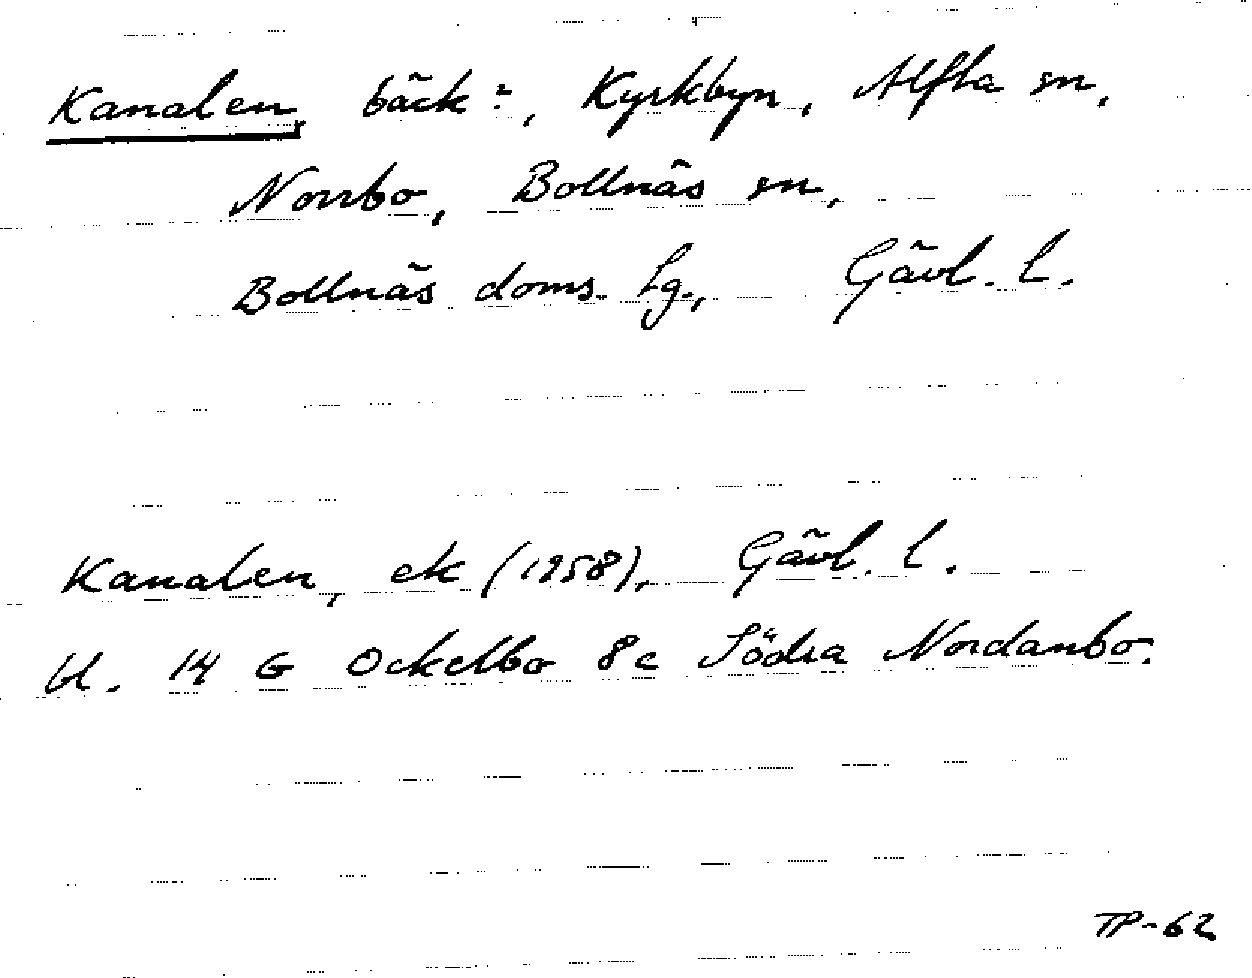 Kanalen, bäck?, Kyrkbyn, Alfta sn,
Norrbo, Bollnäs sn,
Bollnäs doms. lg., Gävl. l.
Kanalen, ek (1958), Gävl. l.
U. 14 G Ockelbo 8c Södra Nordanbo.
TP-62